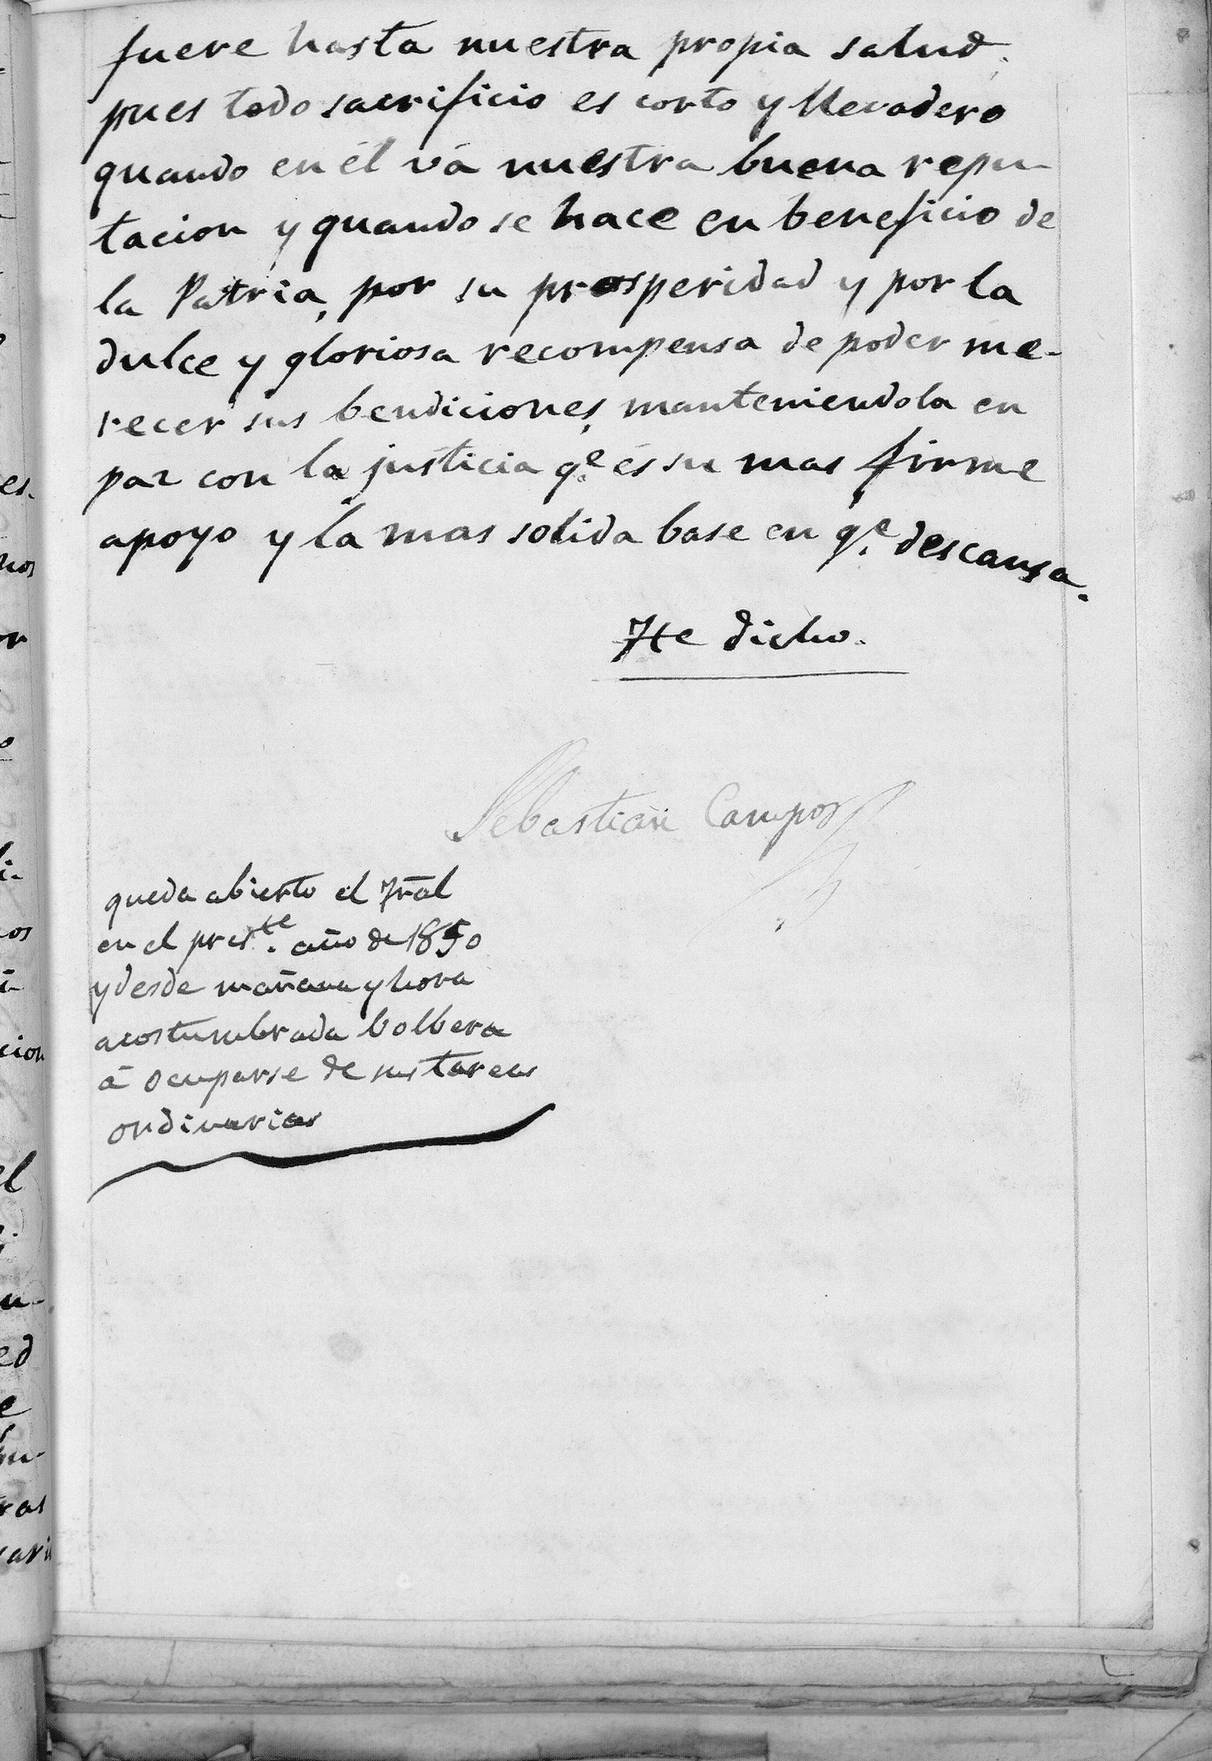 fuere hasta nuestra propia salud,
pues todo sacrificio es corto y llevadero
quando en él vá nuestra buena repu-
tacion y quando se hace en beneficio de
la Patria, por su prosperidad y por la
dulce y gloriosa recompensa de poder me-
recer sus bendiciones, manteniendola en
paz con la justicia qe. és su mas firme
apoyo y la mas solida base en qe. descansa.
He dicho.
Sebastian Campos
queda abierto el Trãl
en el preste. año de 1850
y desde mañana y hora
acostumbrada bolbera
á ocuparse de sus tareas
ordinarias